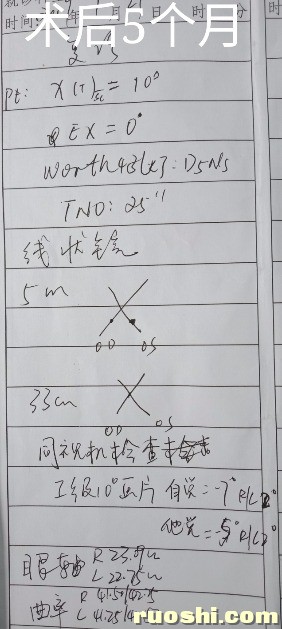 术后5个月
时间: 年 月 时 分
复诊
Pt: X(T)sc = 10°
EX = 0°
Worth4点: D5N5
TNO: 25"
线状镜
5m
OD OS
33cm
OD OS
同视机检查
I级10°画片 自觉=-7° R/L2°
他觉=-8° R/L2°
眼轴 R 23.9
L 22.75
曲率 R 41.50/42.5
L 41.25/
ruoshi.com